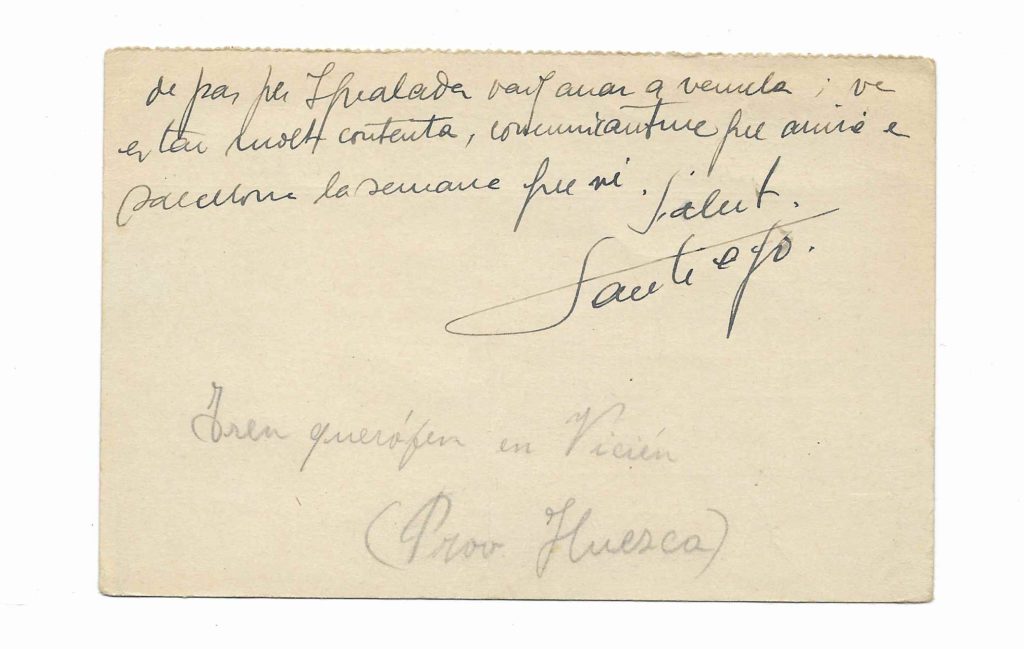 de pas per Igualada vaig anar a veurela i va
estar molt contenta, comunicantme que aniria a
Barcelona la semana que ve. Salut.
Santiago.
Tren quirófen en Vicién
(Prov Huesca)